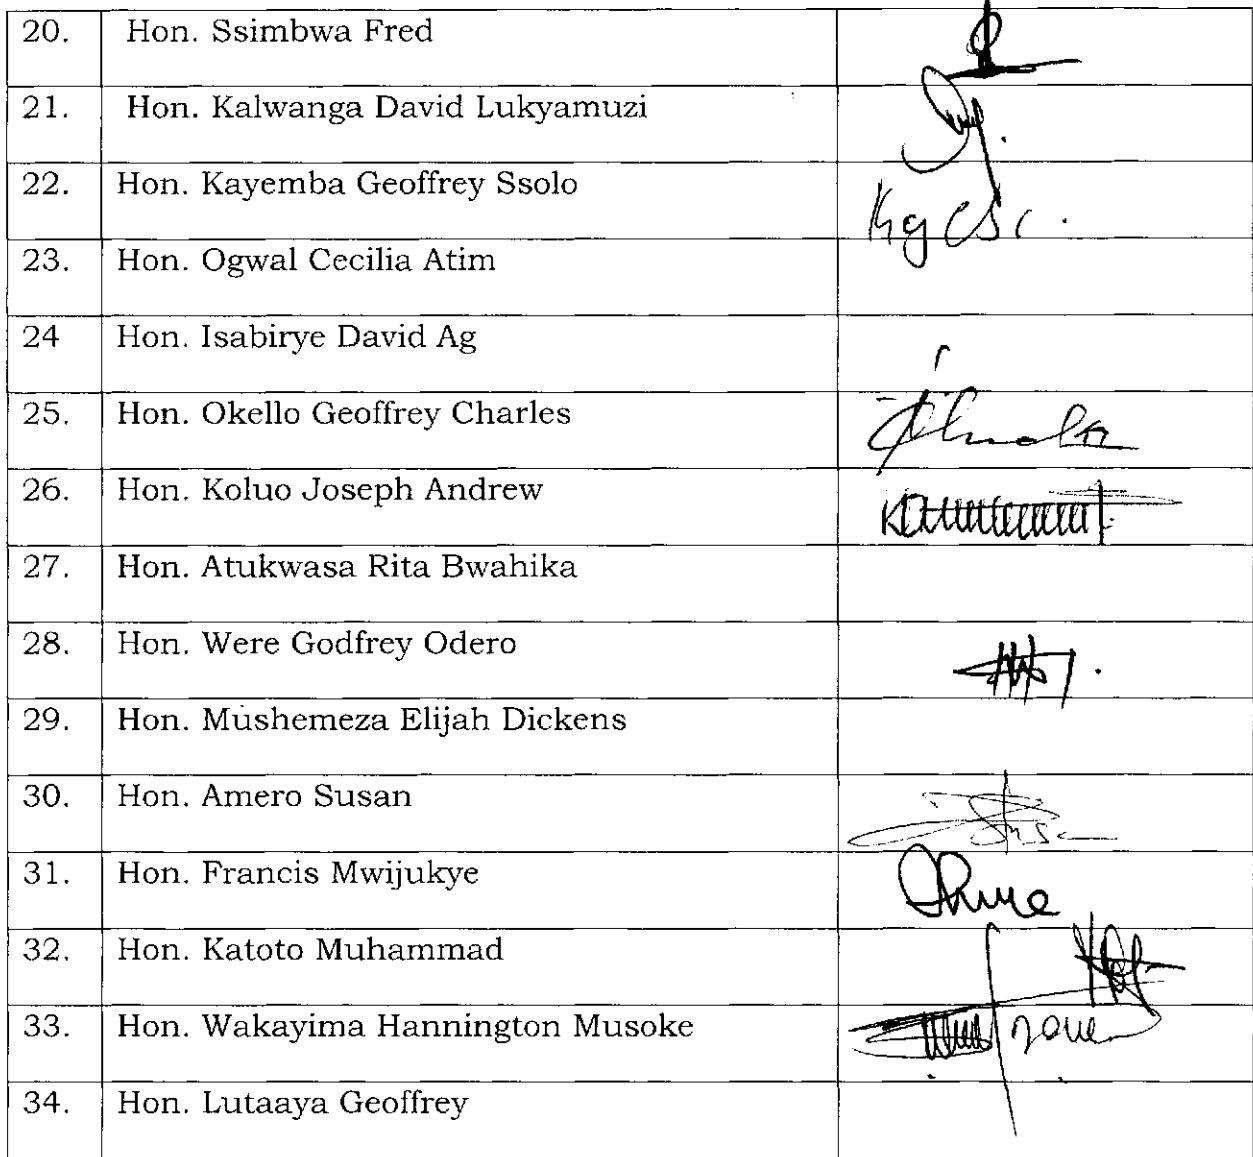 20. Hon. Ssimbwa Fred
21. Hon. Kalwanga David Lukyamuzi
22. Hon. Kayemba Geoffrey Ssolo
23. Hon. Ogwal Cecilia Atim
24 Hon. Isabirye David Ag
25. Hon. Okello Geoffrey Charles
26. Hon. Koluo Joseph Andrew
27. Hon. Atukwasa Rita Bwahika
28. Hon. Were Godfrey Odero
29. Hon. Mushemeza Elijah Dickens
30. Hon. Amero Susan
31. Hon. Francis Mwijukye
32. Hon. Katoto Muhammad
33. Hon. Wakayima Hannington Musoke
34. Hon. Lutaaya Geoffrey